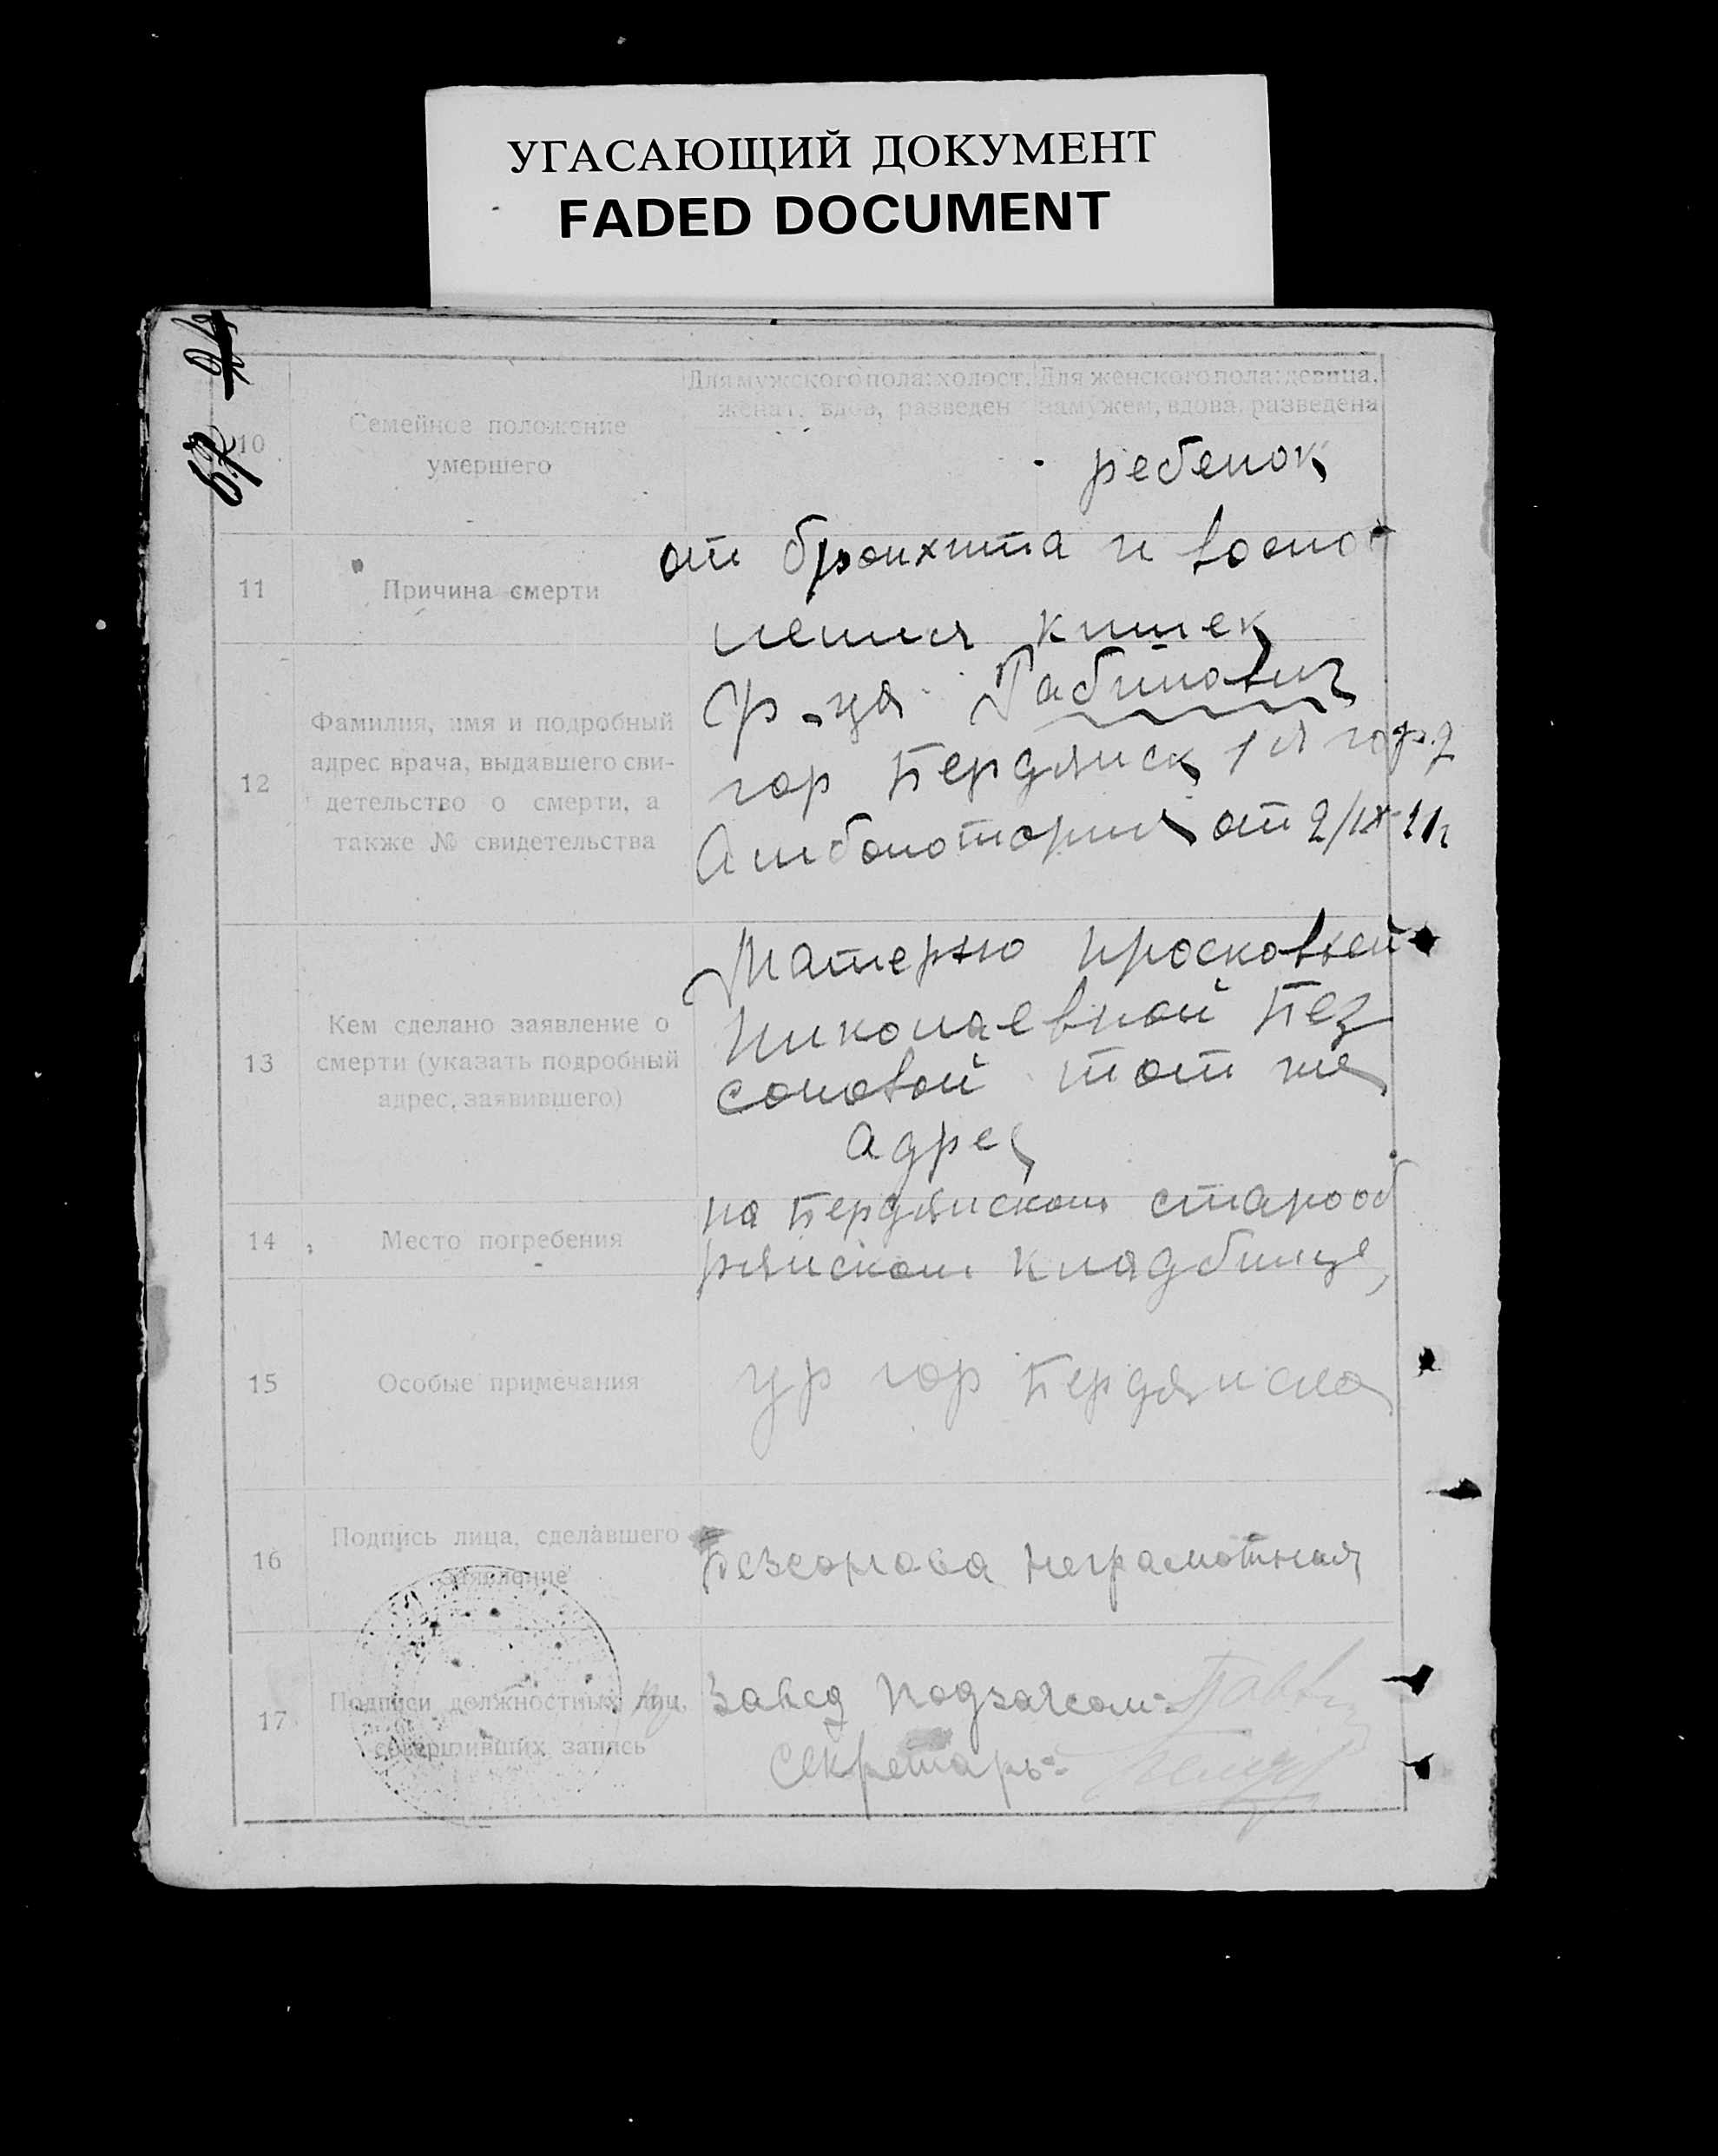 УГАСАЮЩИЙ ДОКУМЕНТ
FADED DOCUMENT
10
Семейное положение
умершего
Для мужского пола: холост,
женат, вдов, разведен
Для женского пола: девица,
замужем, вдова, разведена
ребенок
11
Причина смерти
от бронхита и воспо
ления кишек
12
Фамилия, имя и подробный
адрес врача, выдавшего сви-
детельство о смерти, а
также № свидетельства
Рабинович
гор Бердянск 1 я гор.
Амболотория от 2/IX-
13
Кем сделано заявление о
смерти (указать подробный
адрес, заявившего)
Матерью Просковьей
Николаевной Без
соновой тот же
адрес
14
Место погребения
на Бердянском старооб
рянском кладбище
15
Особые примечания
гр гор Бердянска
16
Подпись лица, сделавшего
заявление
Безсонова неграмотная
17
Подписи должностных лиц,
совершивших запись
Завед подзагсом-
Секретарь-